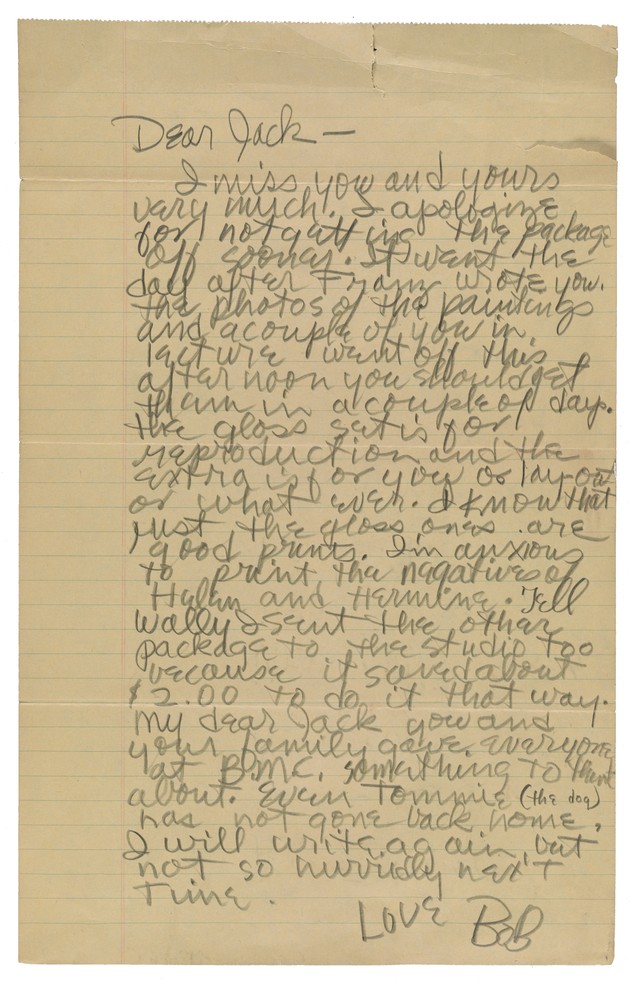 Dear Jack —
I miss you and yours
very much. I apologize
for not getting the package
off sooner. It went the
day after Franz wrote you.
the photos of the paintings
and a couple of you in
lecture went off this
afternoon you should get
them in a couple of days.
the gloss set is for
reproduction and the
extra is for you or lay-out
or what ever. I know that
just the gloss ones are
good prints. Im anxious
to print the negatives of
Helen and Hermine. Tell
Wally I sent the other
package to the studio too
because it saved about
$2.00 to do it that way.
My dear Jack you and
your family gave everyone
at B.M.C. something to think
about. Even Tommie (the dog)
has not gone back home.
I will write again, but
not so hurridly next
time.
Love Bob